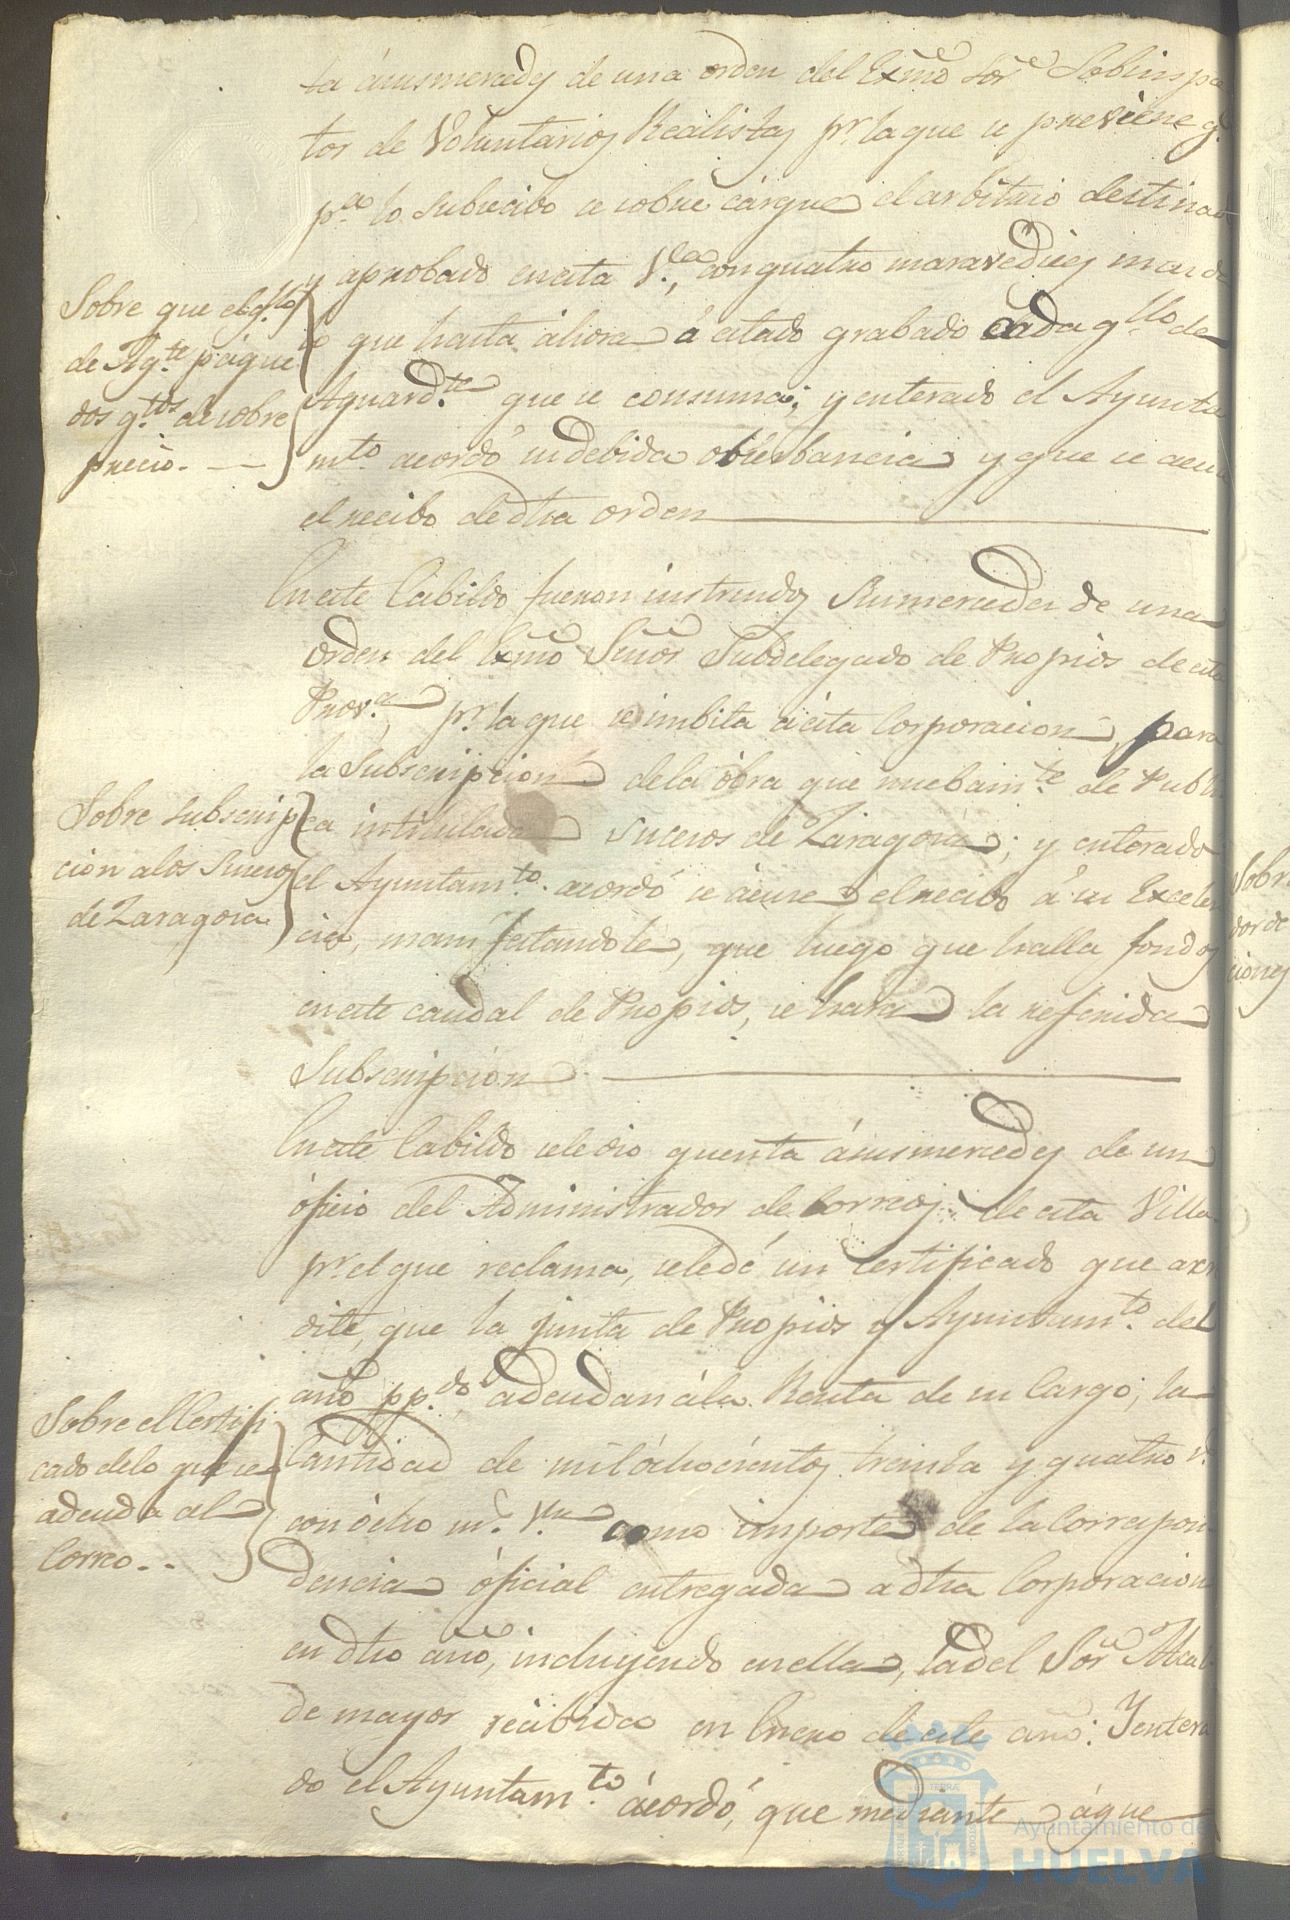 ta ásusmercedes de una orden del Exmo Sor. Sobinspec
tor de Voluntarios Realistas pr. la que se previene q.
pa. lo subsecibo se sobre cárgue el arbitrio destinado
y aprobado en esta Va., con quatro maravedices mas de
lo que hasta áhora á estado grabado cada qllo. de
Aguardte. que se consuma; y enterado el Ayunta
mto. acordó su debida obserbancia y que se acuse
el recibo de dha orden
Sobre que el qllo.
de Agte. págue
dos qtos. de sobre
precio.
En este Cabildo fueron instruidos Sumercedes de una
orden del Exmo Señor Subdelegado de Propios de esta
Prova. pr. la que se imbita á esta Corporacion para
la Subscripcion de la óbra que nuebamte. se Publi
ca intitulada sucesos de Zaragoza; y enterado
el Ayuntamto. acordó se ácuse el recibo á su Excelen
cia, manifestandole, que luego que halla fondos
en este caudal de Propios, se hara la referida
Subscripcion
Sobre subscrip
cion a los Sucesos
de Zaragoza
En este Cabildo se le dio quenta ásusmercedes de un
óficio del Administrador de Correos de esta Villa
pr. el que reclama, se le dé un Certificado que acre
dite, que la junta de Propios y Ayuntamto. del
año ppdo. adeudan á la Renta de su Cargo, la
Cantidad de mil óchocientos treinta y quatro r.
con ócho m. vn. como importe de la Correspon
dencia óficial entregada a dha Corporacion
en dho año, incluyendo en ella, la del Sor. Alcal
de mayor recibida en Enero de este año: Y entera
do el Ayuntamto. ácordó, que mediante áque
Sobre el Certifi
cado de lo que se
adeuda al
Correo
Sobre
dor de
ciones
Ayuntamiento de
HUELVA